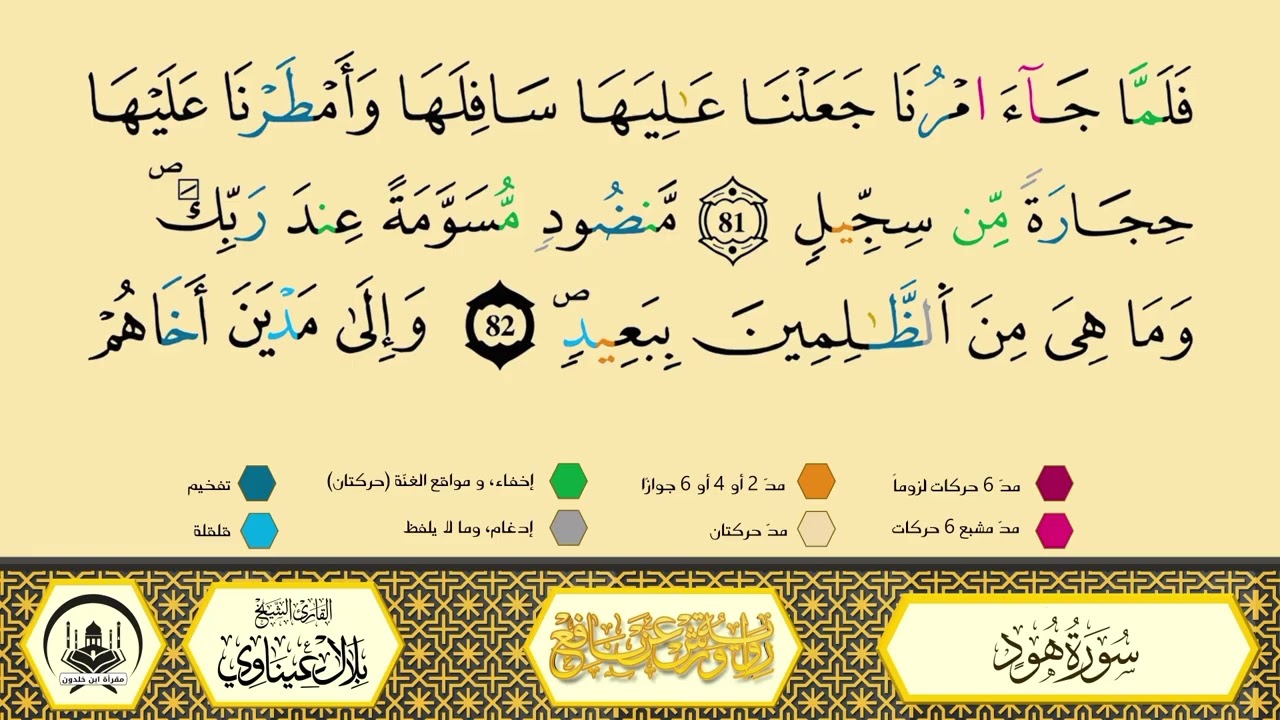 فَلَمَّا جَآءَ امْرُنَا جَعَلْنَا عَٰلِيَهَا سَافِلَهَا وَأَمْطَرْنَا عَلَيْهَا
حِجَارَةً مِّن سِجِّيلٍ 81 مَّنضُودٍ مُّسَوَّمَةً عِندَ رَبِّكَ ص
وَمَا هِىَ مِنَ اَ۬لظَّٰلِمِينَ بِبَعِيدٍ ص 82 وَإِلَىٰ مَدْيَنَ أَخَاهُمْ
مدّ 6 حركات لزوماً مدّ 2 أو 4 أو 6 جوازًا إخفاء، و مواقع الغنّة (حركتان) تفخيم
مدّ مشبع 6 حركات مدّ حركتان إدغام، وما لا يلفظ قلقلة
سُورَةُ هُودٍ
رواية ورش عن نافع
القارئ الشيخ
بلال عيناوي
مقرأة ابن خلدون